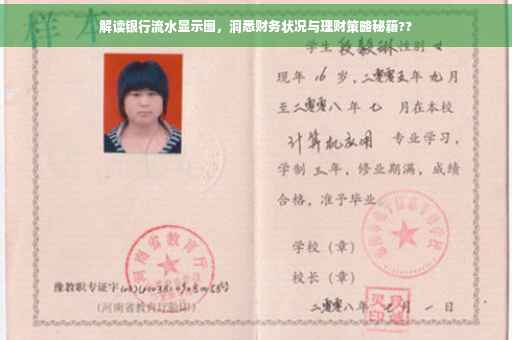 解读银行流水显示图，洞悉财务状况与理财策略秘籍??
样本
学生 段毅琳 性别 女
现年 16 岁，二零零五年 九月
至二零零八年 七 月在本校
计算机应用 专业学习，
学制 三 年，修业期满，成绩
合格，准予毕业
学校（章）
校长（章）
二零零八年 七 月 一 日
河南省教育厅
豫教职专证字
（河南省教育厅验印）